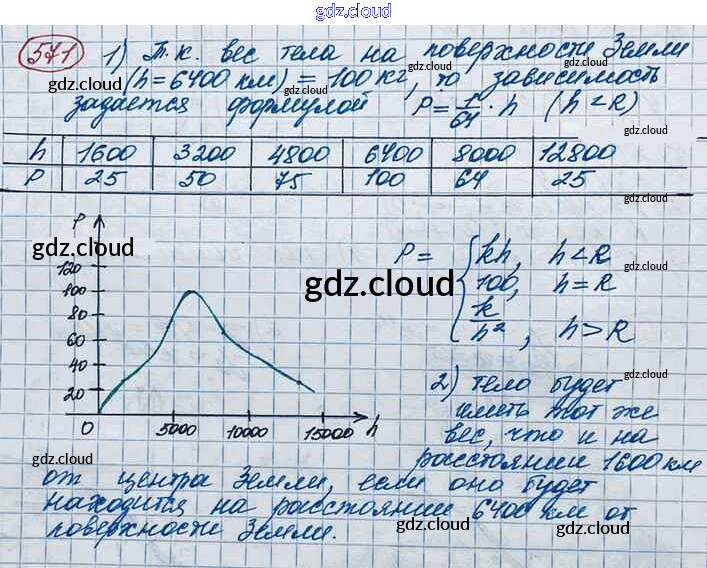 gdz.cloud
571 1) Т.к. вес тела на поверхности Земли
gdz.cloud
(h=6400 км) = 100 кг, то зависимость
gdz.cloud
задается формулой P = 1/64 · h (h < R)
gdz.cloud
h 1600 3200 4800 6400 8000 12800
P 25 50 75 100 64 25
gdz.cloud
P
120
100
80
60
40
20
0 5000 10000 15000 h
gdz.cloud
P = { kh, h < R
gdz.cloud
100, h = R
k/h², h > R
gdz.cloud
2) тело будет
gdz.cloud
иметь тот же
вес, что и на
расстоянии 1600 км
gdz.cloud
от центра Земли, если оно будет
gdz.cloud
находится на расстоянии 6400 км от
gdz.cloud
поверхности Земли.
gdz.cloud